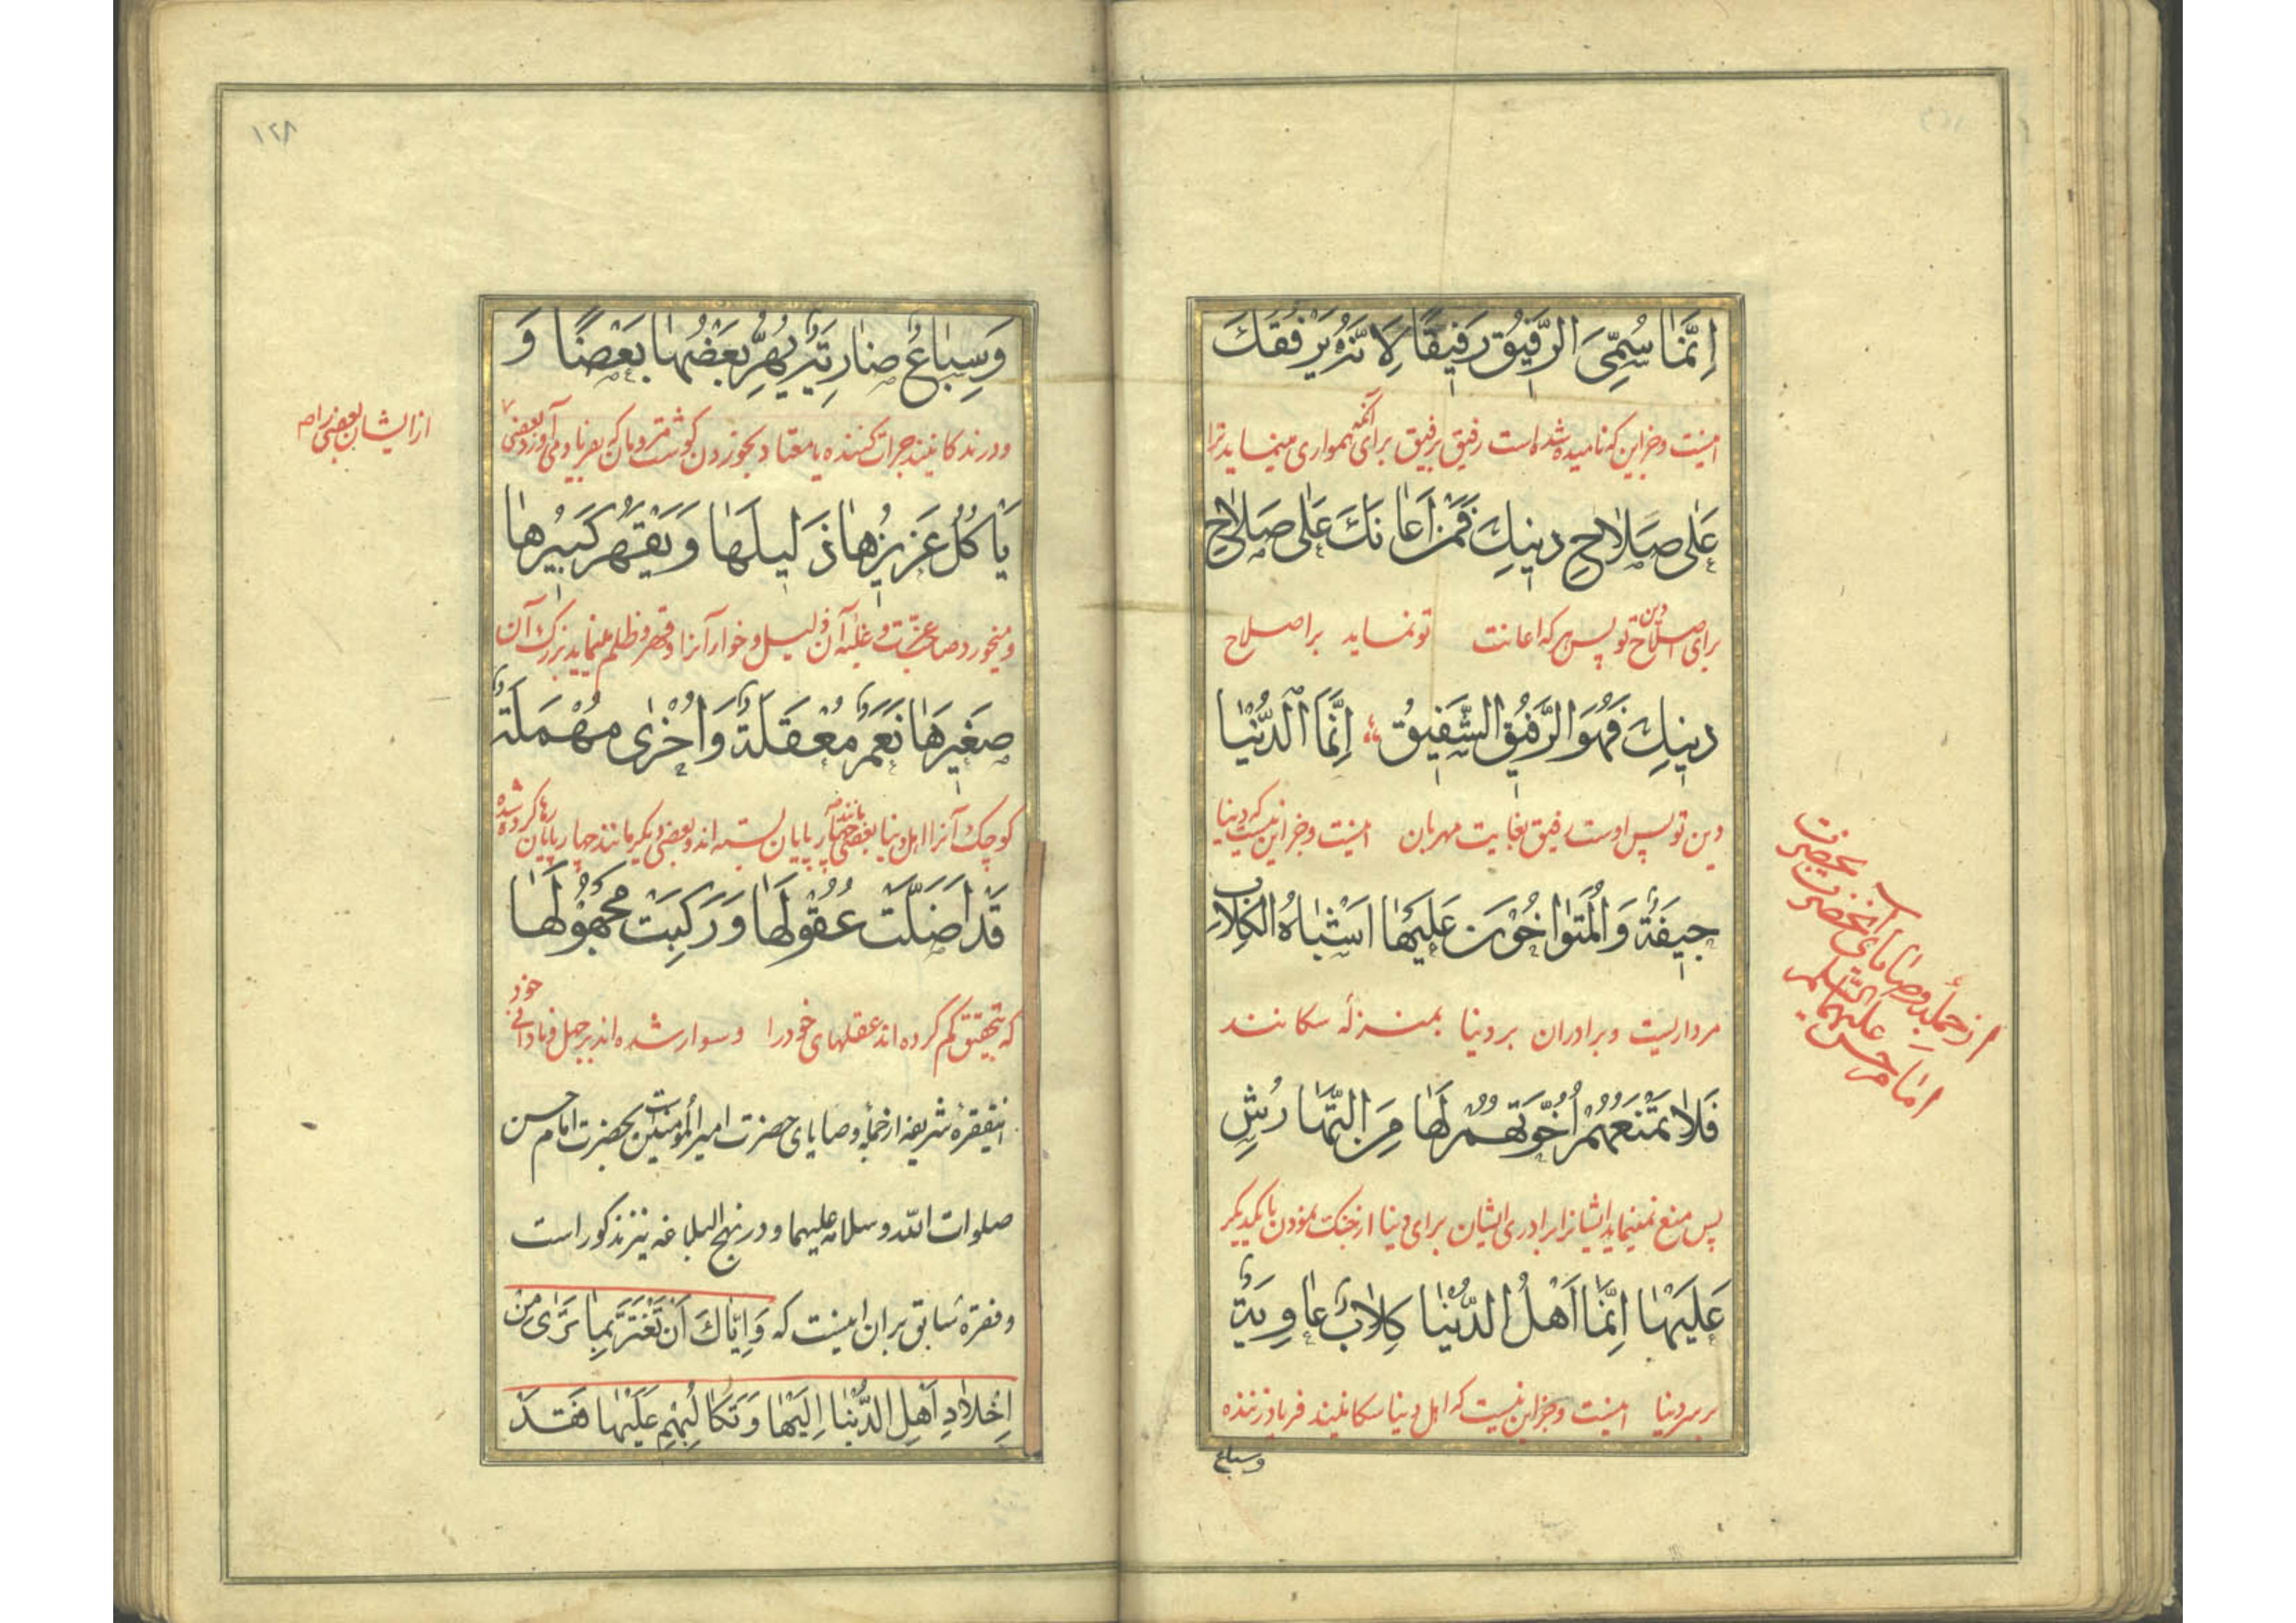 اِنَّمٰا سُمِّیَ الرَّفیٖقُ رَفیٖقًا لِاَنَّهُ یَرْفُقُكَ
اینست وجز این که نامیده شده است رفیق برفیق برای آنکه همواری مینماید ترا
عَلٰی صَلاٰحِ دیٖنِكَ فَمَنْ اَعٰانَكَ عَلٰی صَلاٰحِ
برای اصلاح دین تو پس هر که اعانت تو نماید بر اصلاح
دیٖنِكَ فَهُوَ الرَّفیٖقُ الشَّفیٖقُ اِنَّمَا الدُّنْیٰا
دین تو پس اوست رفیق بغایت مهربان اینست وجز این نیست که دنیا
جیٖفَةٌ وَالْمُتَوٰاخُوْنَ عَلَیْهٰا اَشْبٰاهُ الْکِلاٰبِ
مرداریست وبرادران بر دنیا بمنزلهٔ سگانند
فَلاٰ تَمْنَعُهُمْ اُخُوَّتُهُمْ لَهٰا مِنَ التَّهٰارُشِ
پس منع نمینماید ایشانرا برادری ایشان برای دنیا از جنگ نمودن با یکدیگر
عَلَیْهٰا اِنَّمٰا اَهْلُ الدُّنْیٰا کِلاٰبٌ عٰاوِیَةٌ
بر سر دنیا اینست وجز این نیست که اهل دنیا سگانیند فریاد زننده
وسباع
از جمله وصایای آنحضرت بحضرت
امام حسن علیهما السلام
۱۲۸
وَسِبٰاعٌ ضٰارِیَةٌ یُهِرُّ بَعْضُهٰا بَعْضًا وَ
ودرندگانیند جرات کننده یا معتاد بخوردن گوشت مردمان که بفریاد می آورد بعضی
از ایشان بعضی را
یَأکُلُ عَزیٖزُهٰا ذَلیٖلَهٰا وَیَقْهَرُ کَبیٖرُهٰا
ومیخورد صاحب عزت وغلبه آن ذلیل وخوار آنرا وقهر وظلم مینماید بزرگ آن
صَغیٖرَهٰا نَعَمٌ مُعَقَّلَةٌ وَاُخْرٰی مُهْمَلَةٌ
کوچک آنرا اهل دنیا بعضی مانند چهارپایان بسته اند وبعضی دیگر مانند چهارپایان رها کرده شده
قَدْ اَضَلَّتْ عُقُوْلَهٰا وَرَکِبَتْ مَجْهُوْلَهٰا
که بتحقیق گم کرده اند عقلهای خود را وسوار شده اند بر جهل ونادانی خود
اینفقرهٔ شریفه از جملهٔ وصایای حضرت امیر المؤمنین است بحضرت امام حسن
صلوات الله وسلامه علیهما ودر نهج البلاغه نیز مذکور است
وفقرهٔ سابق بر ان اینست که وَاِیّٰاكَ اَنْ تَغْتَرَّ بِمٰا تَرٰی مِنْ
اِخْلاٰدِ اَهْلِ الدُّنْیٰا اِلَیْهٰا وَتَکٰالُبِهِمْ عَلَیْهٰا فَقَدْ